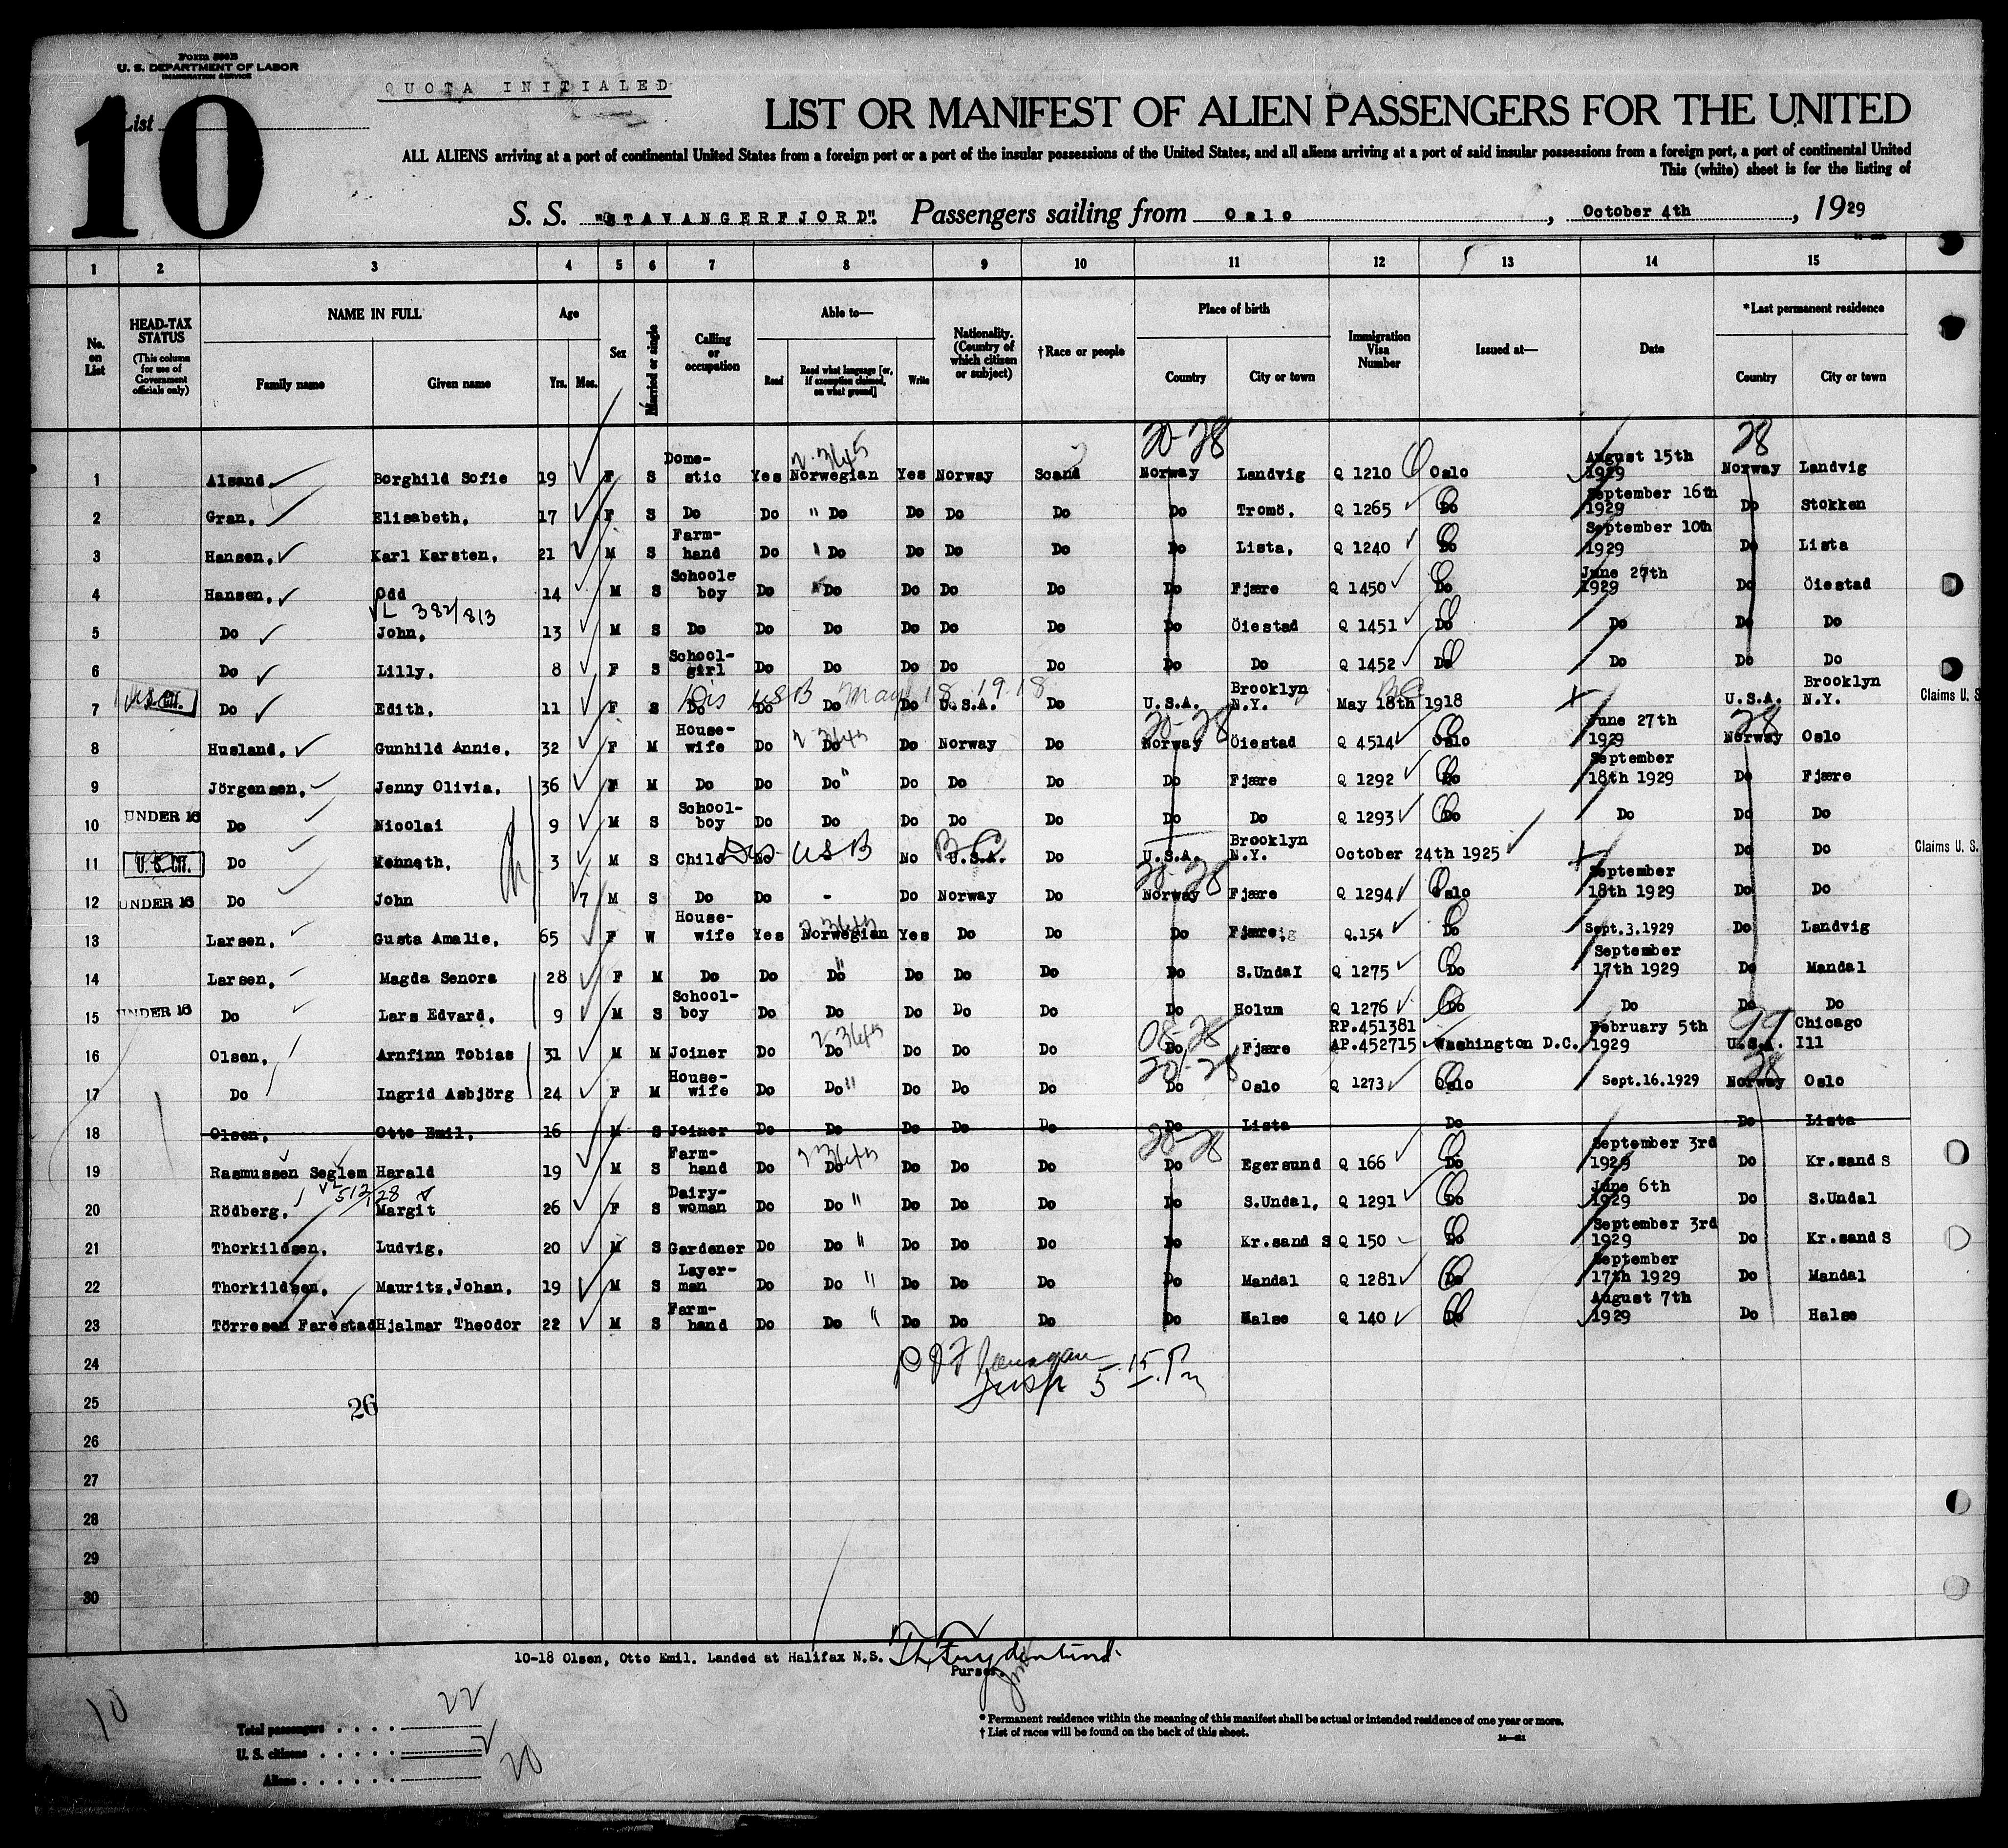 Form 500B
U. S. DEPARTMENT OF LABOR
IMMIGRATION SERVICE
QUOTA INITIALED
List
10
LIST OR MANIFEST OF ALIEN PASSENGERS FOR THE UNITED
ALL ALIENS arriving at a port of continental United States from a foreign port or a port of the insular possessions of the United States, and all aliens arriving at a port of said insular possessions from a foreign port, a port of continental United
This (white) sheet is for the listing of
S. S. "STAVANGERFJORD". Passengers sailing from Oslo, October 4th, 1929
1 2 3 4 5 6 7 8 9 10 11 12 13 14 15
No. on List
HEAD-TAX STATUS (This column for use of Government officials only)
NAME IN FULL Family name Given name
Age Yrs. Mos.
Sex
Married or single
Calling or occupation
Able to— Read Read what language [or, if exemption claimed, on what ground] Write
Nationality. (Country of which citizen or subject)
†Race or people
Place of birth Country City or town
Immigration Visa Number
Issued at—
Date
*Last permanent residence Country City or town
20-28 28
1 Alsand. Borghild Sofie 19 F S Dome-stic Yes Norwegian Yes Norway Scand Norway Landvig Q 1210 Oslo August 15th 1929 Norway Landvig
2 Gran. Elisabeth. 17 F S Do Do " Do Do Do Do Do Tromö. Q 1265 Do September 16th 1929 Do Stokken
3 Hansen. Karl Karsten. 21 M S Farm-hand Do " Do Do Do Do Do Lista. Q 1240 Do September 10th 1929 Do Lista
4 Hansen. Odd 14 M S Schools boy Do Do Do Do Do Do Fjære Q 1450 Do June 27th 1929 Do Öiestad
VL 382/813
5 Do John. 13 M S Do Do Do Do Do Do Do Öiestad Q 1451 Do Do Do Do
6 Do Lilly. 8 F S School-girl Do Do Do Do Do Do Do Q 1452 Do Do Do Do
Dis USB May 18 1918 BC
7 U.S. CIT. Do Edith. 11 F S Do Do Do Do U.S.A. Do U.S.A. Brooklyn N.Y. May 18th 1918 U.S.A. Brooklyn N.Y. Claims U. S
20-28 28
8 Husland. Gunhild Annie. 32 F M House-wife Do Do Do Norway Do Norway Öiestad Q 4514 Oslo June 27th 1929 Norway Oslo
9 Jörgensen. Jenny Olivia. 36 F M Do Do Do " Do Do Do Do Fjære Q 1292 Do September 18th 1929 Do Fjære
10 UNDER 16 Do Nicolai 9 M S School-boy Do Do Do Do Do Do Do Q 1293 Do Do Do Do
11 U. S. CIT. Do Kenneth. 3 M S Child No Dis USB No BC U.S.A. Do U.S.A. Brooklyn N.Y. October 24th 1925 Do Do Claims U. S.
20-28
12 UNDER 16 Do John 7 M S Do Do - Do Norway Do Norway Fjære Q 1294 Oslo September 18th 1929 Do Do
13 Larsen. Gusta Amalie. 65 F W House-wife Yes Norwegian Yes Do Do Do Fjære. Q.154 Do Sept.3.1929 Do Landvig
14 Larsen. Magda Senora 28 F M Do Do Do " Do Do Do Do S.Undal Q 1275 Do September 17th 1929 Do Mandal
15 UNDER 16 Do Lars Edvard. 9 M S School-boy Do Do Do Do Do Do Holum Q 1276 Do Do Do Do
08-28 99
16 Olsen. Arnfinn Tobias 31 M M Joiner Do Do Do Do Do Do Fjære RP.451381 AP.452715 Washington D.C. February 5th 1929 U.S.A. Chicago Ill
20-28 28
17 Do Ingrid Asbjörg 24 F M House-wife Do Do " Do Do Do Do Oslo Q 1273 Oslo Sept.16.1929 Norway Oslo
18 Olsen. Otto Emil. 16 M S Joiner Do Do Do Do Do Do Lista Do Do Lista
20-28
19 Rasmussen Seglem Harald 19 M S Farm-hand Do Do Do Do Do Do Egersund Q 166 Do September 3rd 1929 Do Kr.sand S
VL 512/128
20 Rödberg. Margit 26 F S Dairy-woman Do Do " Do Do Do Do S.Undal. Q 1291 Do June 6th 1929 Do S.Undal
21 Thorkildsen. Ludvig. 20 M S Gardener Do Do " Do Do Do Do Kr.sand S Q 150 Do September 3rd 1929 Do Kr.sand S
22 Thorkildsen. Mauritz.Johan. 19 M S Layer-man Do Do " Do Do Do Do Mandal Q 1281 Do September 17th 1929 Do Mandal
23 Törresen Farestad Hjalmar Theodor 22 M S Farm-hand Do Do " Do Do Do Do Halse Q 140 Do August 7th 1929 Do Halse
24
Insp 5.15 Pm
25
26
26
27
28
29
30
10-18 Olsen, Otto Emil. Landed at Halifax N.S.
Purser.
10
Total passengers . . . . . 22
U. S. citizens . . . . . 2
Aliens . . . . . . 20
* Permanent residence within the meaning of this manifest shall be actual or intended residence of one year or more.
† List of races will be found on the back of this sheet.